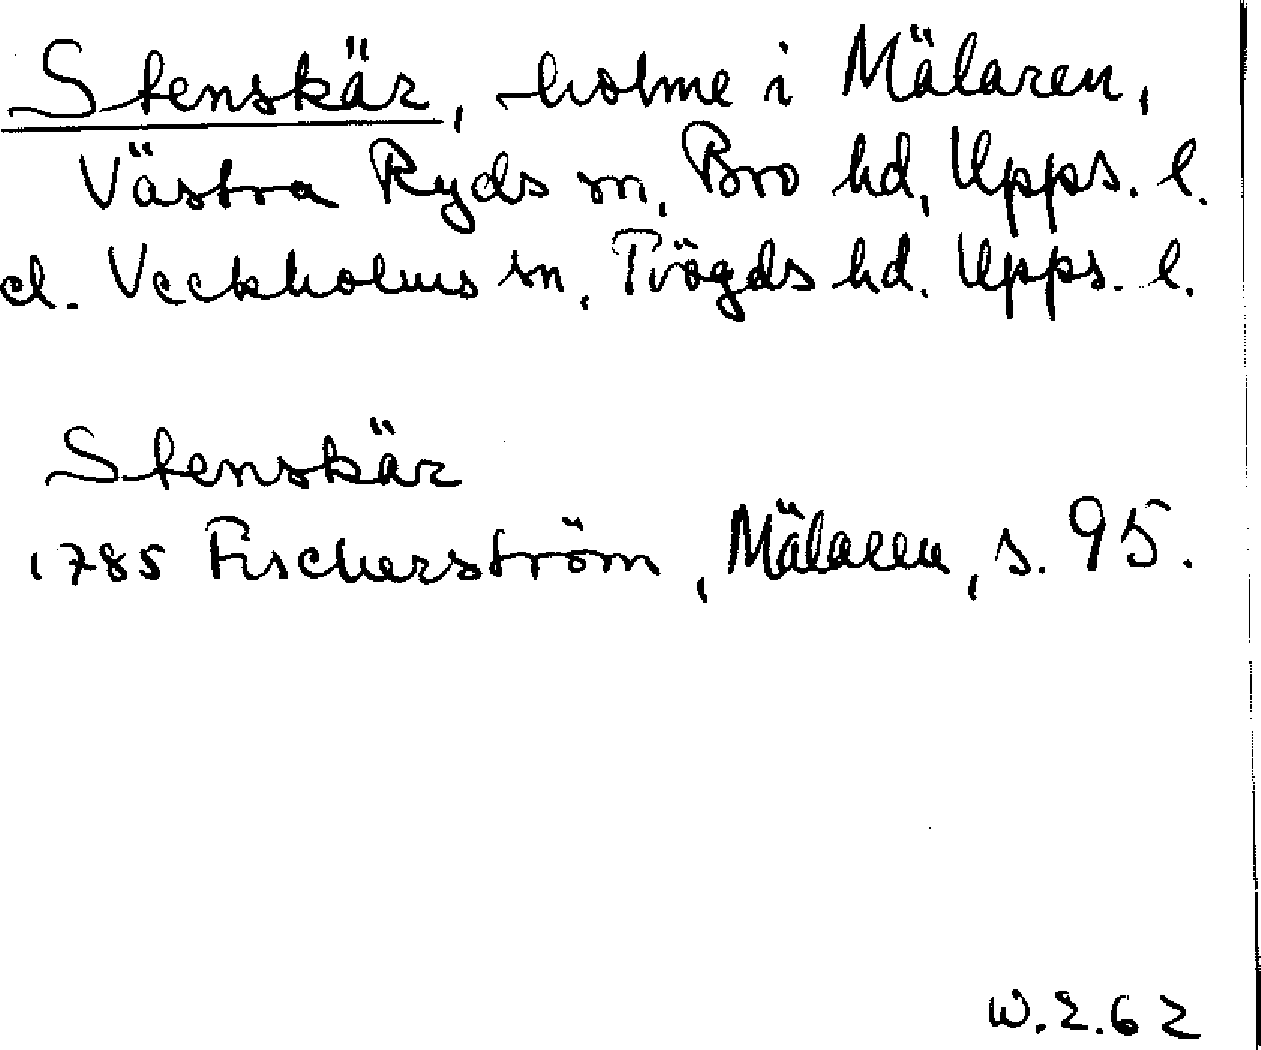 Stenskär, holme i Mälaren,
Västra Ryds sn, Bro hd, Upps. l.
el. Veckholms sn, Trögds hd. Upps. l.
Stenskär
1785 Fischerström, Mälaren, s. 95.
W.E.62